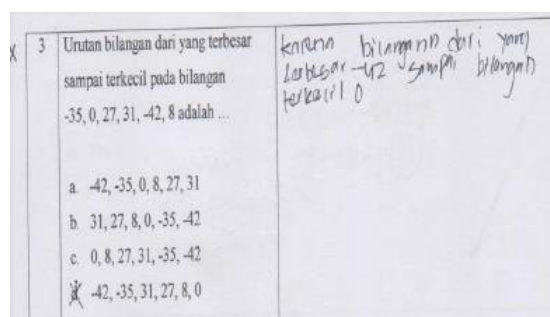 X
3 Urutan bilangan dari yang terbesar
sampai terkecil pada bilangan
-35, 0, 27, 31, -42, 8 adalah ...
a. -42, -35, 0, 8, 27, 31
b. 31, 27, 8, 0, -35, -42
c. 0, 8, 27, 31, -35, -42
-42, -35, 31, 27, 8, 0
karena bilangan dari yang
terbesar -42 sampai bilangan
terkecil 0